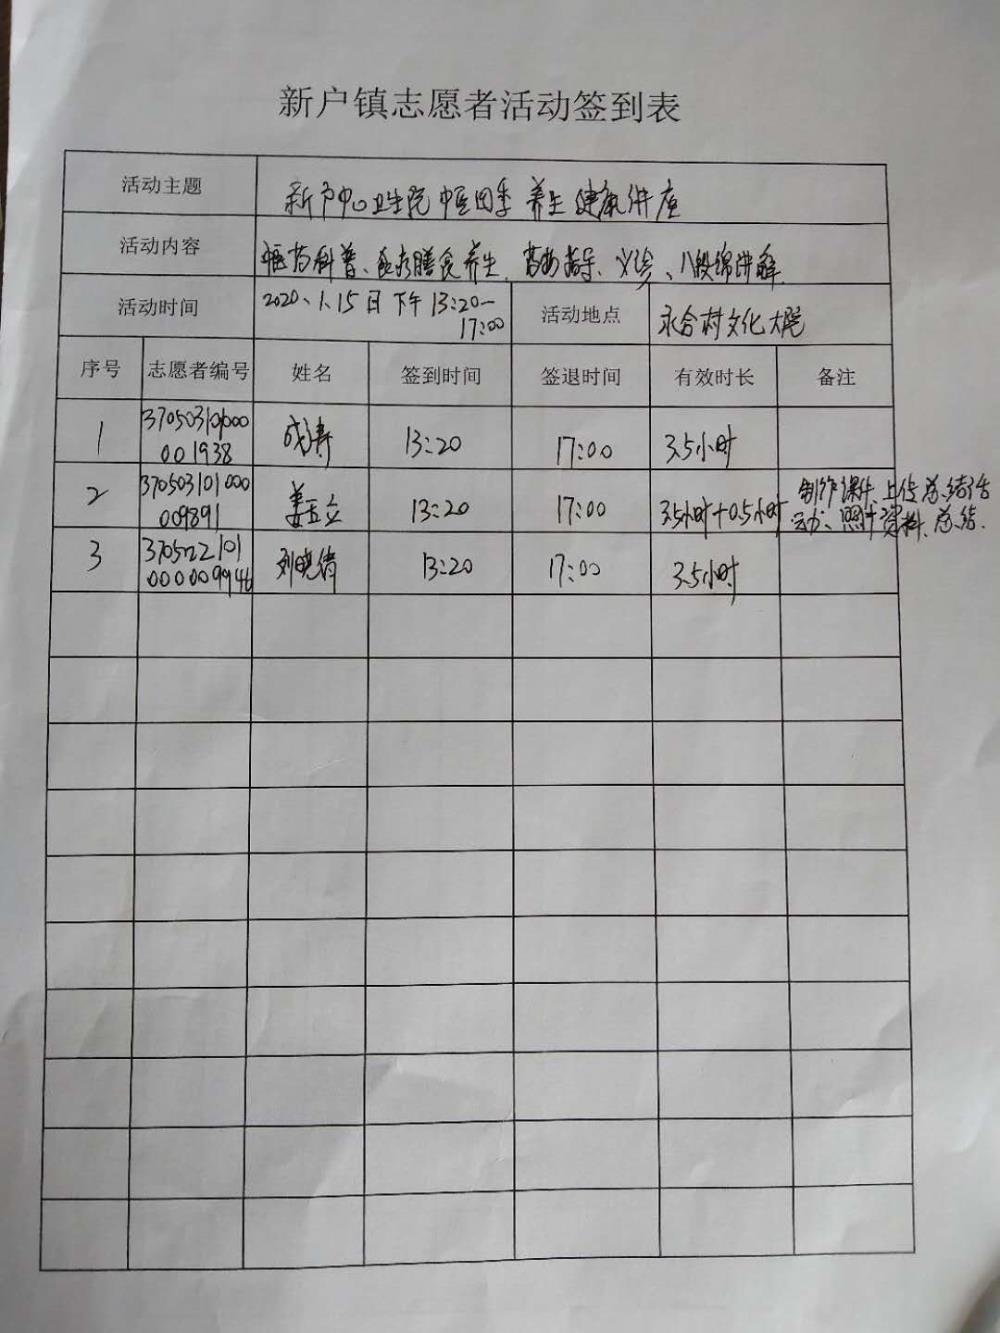 新户镇志愿者活动签到表
活动主题 新户中心卫生院中医四季养生健康讲座
活动内容 中医药科普、食疗膳食养生、指导、义诊、八段锦讲解
活动时间 2020、1、15日下午13:20-
17:00
活动地点 永合村文化大院
序号 志愿者编号 姓名 签到时间 签退时间 有效时长 备注
1 370503101000
001938 成涛 13:20 17:00 3.5小时
2 370503101000
009891 姜五立 13:20 17:00 3.5小时+0.5小时 制作课件、上传总结活
动、照片资料、总结.
3 370522101
000009946 刘晓倩 13:20 17:00 3.5小时